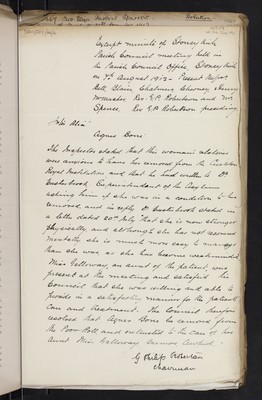 Excerpt minute of Stoneykirk
Parish Council meeting held in
the Parish Council Office, Stoneykirk
on 7th August 1913 - Present Messrs
Bell, Blair, Chalmers,
Rev. G. P. Robertson and Mr
Spence. Rev. G. P. Robertson presiding
"Inter Alia"
Agnes
The Inspector stated that the woman's relatives
were anxious to have her removed from the Crichton
Royal Institution and that he had written to Dr
Easterbrook Superintendent of the Asylum
asking him if she was in a condition to be
removed, and in reply Dr Easterbrook stated in
a letter dated 20th July that she is now stronger
physically, and although she has not recovered
mentally she is much more easy to manage
than she was as she has become weakminded
Miss Galloway, an aunt of the patient, was
present at the meeting and satisfied the
Council that she was willing and able to
provide in a satisfactory manner for the patient's
care and treatment. The Council therefore
resolved that Agnes be removed from
the Poor Roll and entrusted to the care of her
aunt Miss Galloway
G Philip Robertson
Chairman